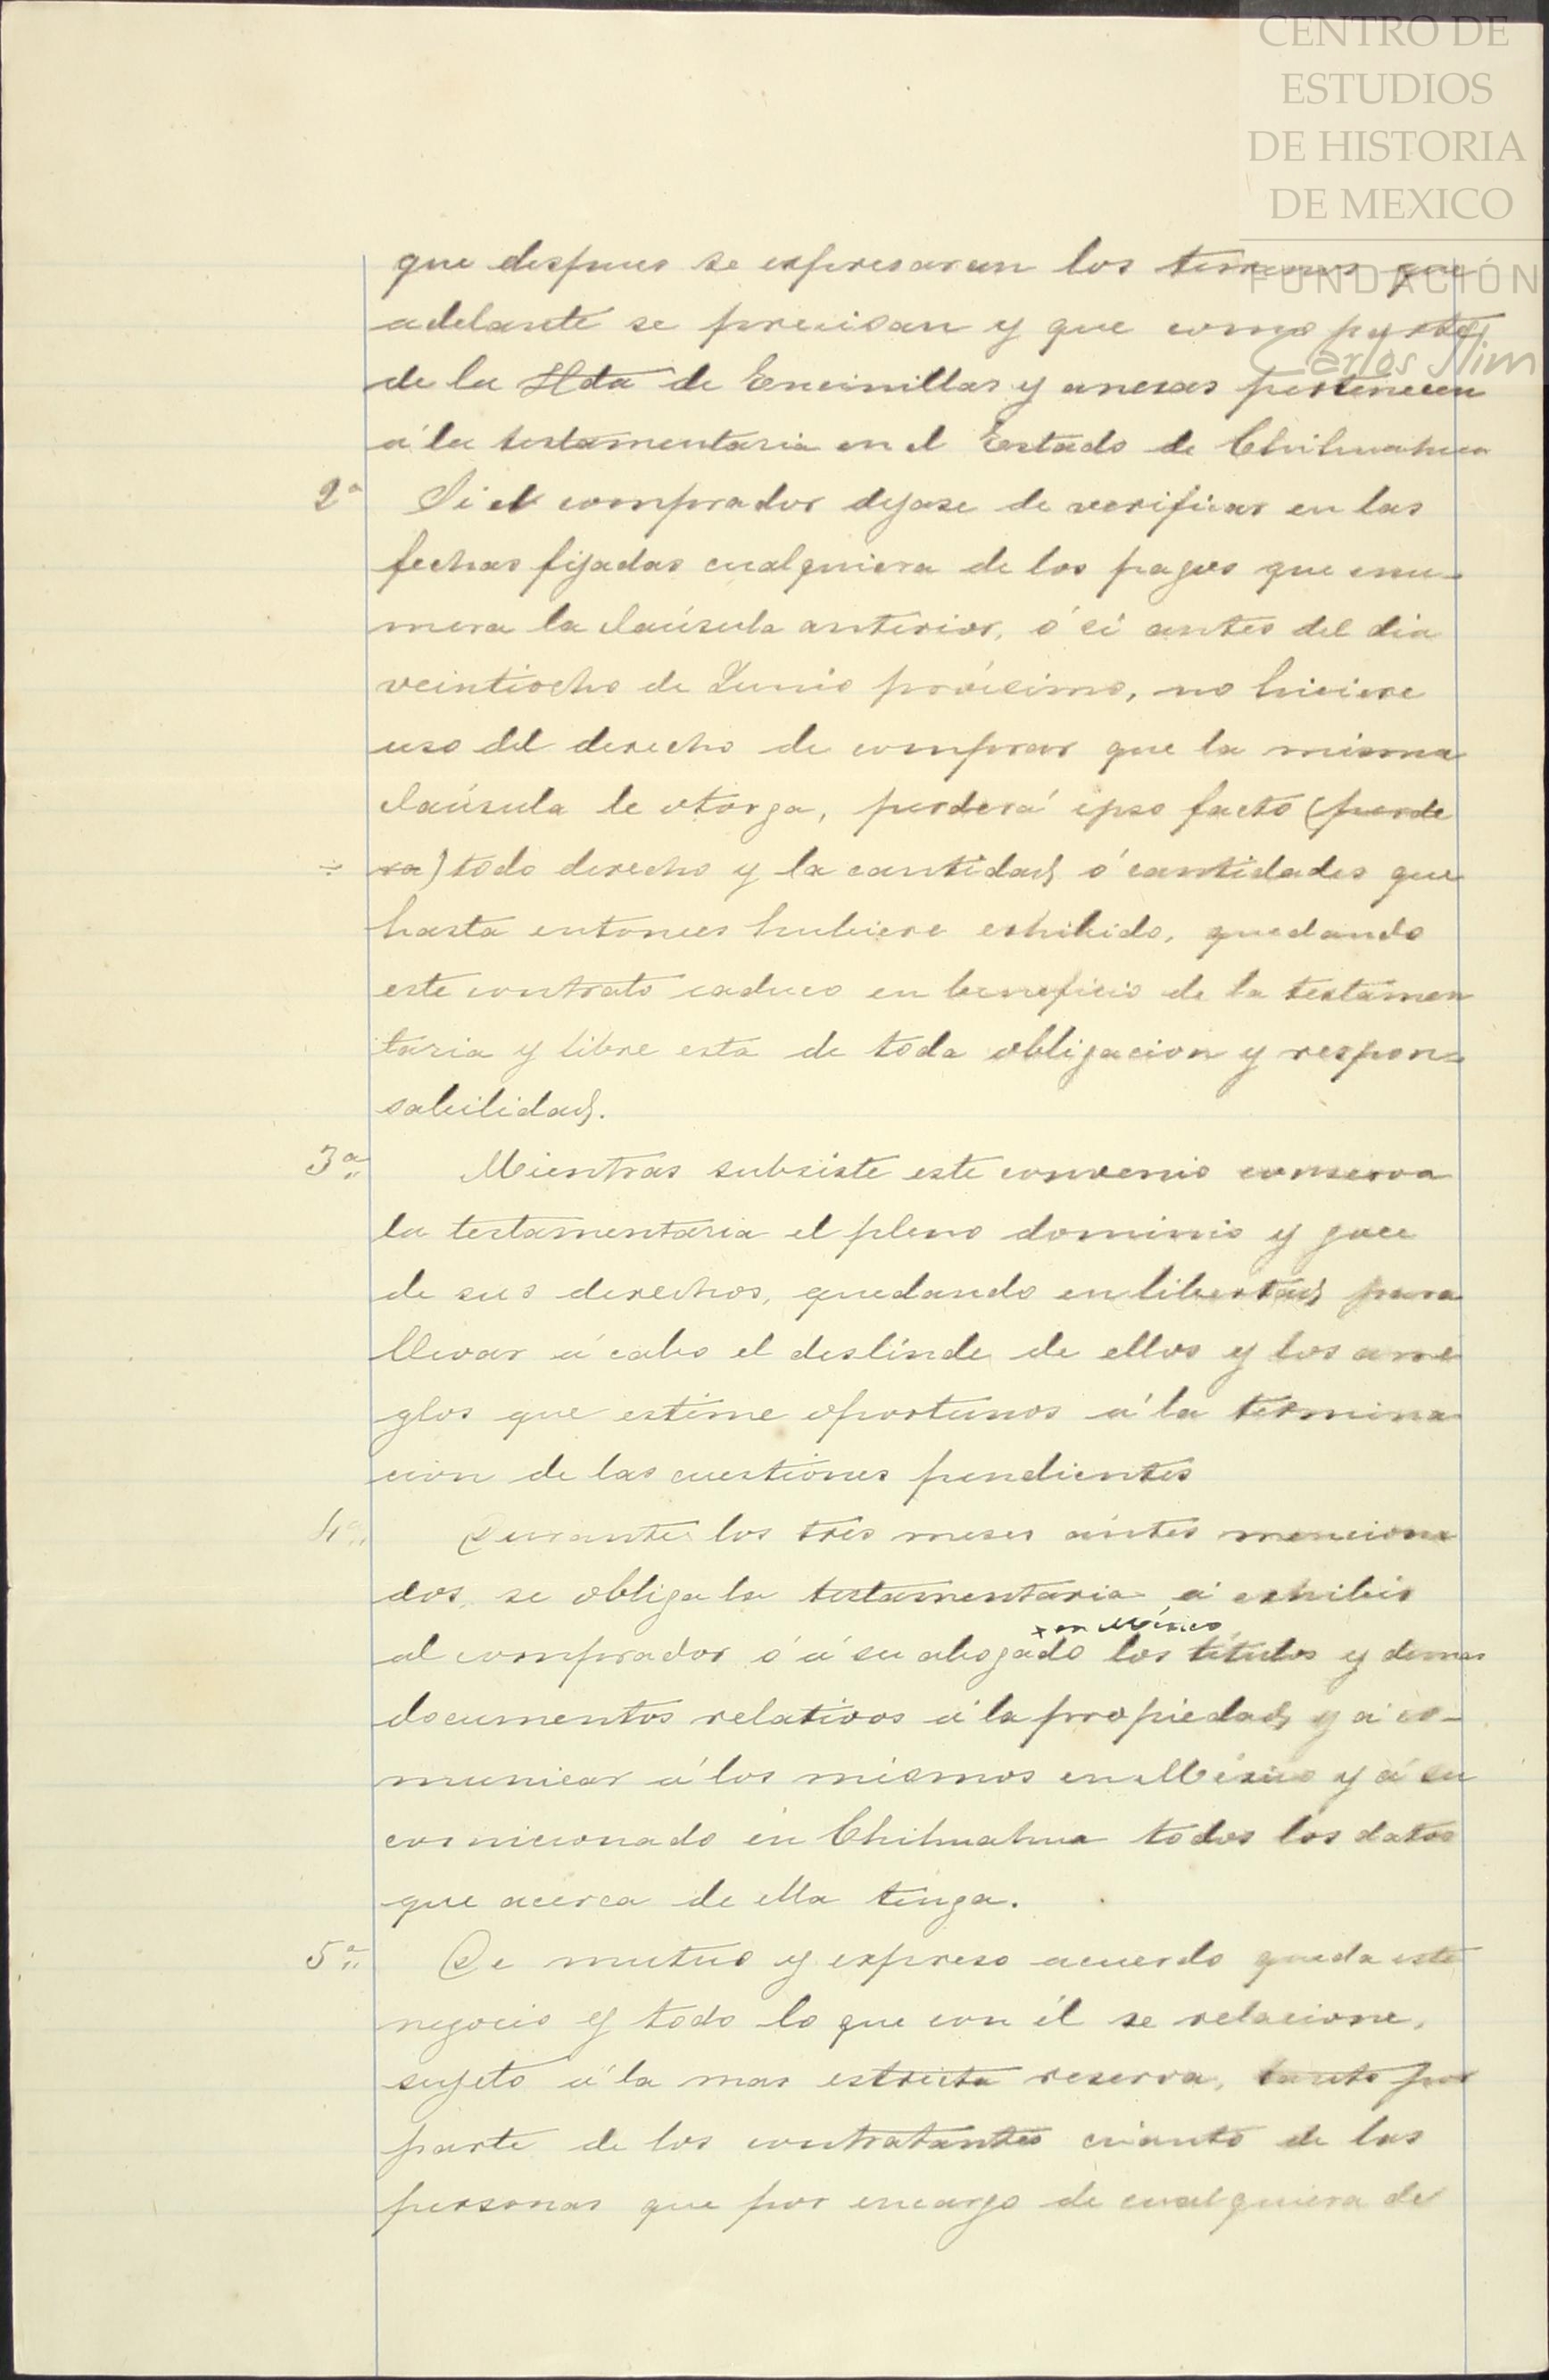 CENTRO DE
ESTUDIOS
DE HISTORIA
DE MEXICO
FUNDACIÓN
Carlos Slim
que despues se expresaran los terrenos que
adelante se precisan y que como parte
de la Hda de Encinillas y anexas pertenecen
á la testamentaria en el Estado de Chihuahua
2ª Si el comprador dejase de verificar en las
fechas fijadas cualquiera de los pagos que enu-
mera la claúsula anterior, ó si antes del dia
veintiocho de Junio próximo, no hiciere
uso del derecho de comprar que la misma
claúsula le otorga, perderá ipso facto (perde
÷ ra) todo derecho y la cantidad ó cantidades que
hasta entonces hubiere exhibido, quedando
este contrato caduco en beneficio de la testamen
taria y libre esta de toda obligacion y respon-
sabilidad.
3ª Mientras subsiste este convenio conserva
la testamentaria el pleno dominio y goce
de sus derechos, quedando en libertad para
llevar á cabo el deslinde de ellos y los arre
glos que estime oportunos á la termina
cion de las cuestiones pendientes
4ª Durante los tres meses antes menciona
dos, se obliga la testamentaria á exhibir
x en México
al comprador ó á su abogado los títulos y demas
documentos relativos á la propiedad y á co-
municar á los mismos en México y á su
comicionado en Chihuahua todos los datos
que acerca de ella tenga.
5ª De mutuo y expreso acuerdo queda este
negocio y todo lo que con él se relacione,
sujeto á la mas estricta reserva, tanto por
parte de los contratantes cuanto de las
personas que por encargo de cualquiera de